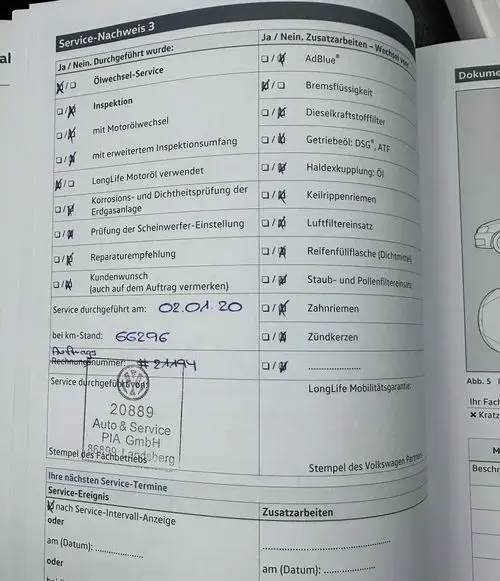 Service-Nachweis 3
Ja / Nein. Durchgeführt wurde:
Ölwechsel-Service
Inspektion
mit Motorölwechsel
mit erweitertem Inspektionsumfang
LongLife Motoröl verwendet
Korrosions- und Dichtheitsprüfung der
Erdgasanlage
Prüfung der Scheinwerfer-Einstellung
Reparaturempfehlung
Kundenwunsch
(auch auf dem Auftrag vermerken)
Service durchgeführt am: 02.01.20
bei km-Stand: 66296
Auftrags
Rechnungsnummer: #21194
Service durchgeführt von:
20889
Auto & Service
PIA GmbH
86899 Landsberg
Stempel des Fachbetriebs
Ja / Nein. Zusatzarbeiten – Wechsel von:
AdBlue®
Bremsflüssigkeit
Dieselkraftstofffilter
Getriebeöl: DSG®, ATF
Haldexkupplung: Öl
Keilrippenriemen
Luftfiltereinsatz
Reifenfüllflasche (Dichtmittel)
Staub- und Pollenfiltereinsatz
Zahnriemen
Zündkerzen
....................
LongLife Mobilitätsgarantie:
Stempel des Volkswagen Partners
Ihre nächsten Service-Termine
Service-Ereignis
nach Service-Intervall-Anzeige
oder
am (Datum): ...............
oder
Zusatzarbeiten
........................................
am (Datum): ....................
Dokume
Abb. 5
Ihr Fach
× Kratz
M
Beschr